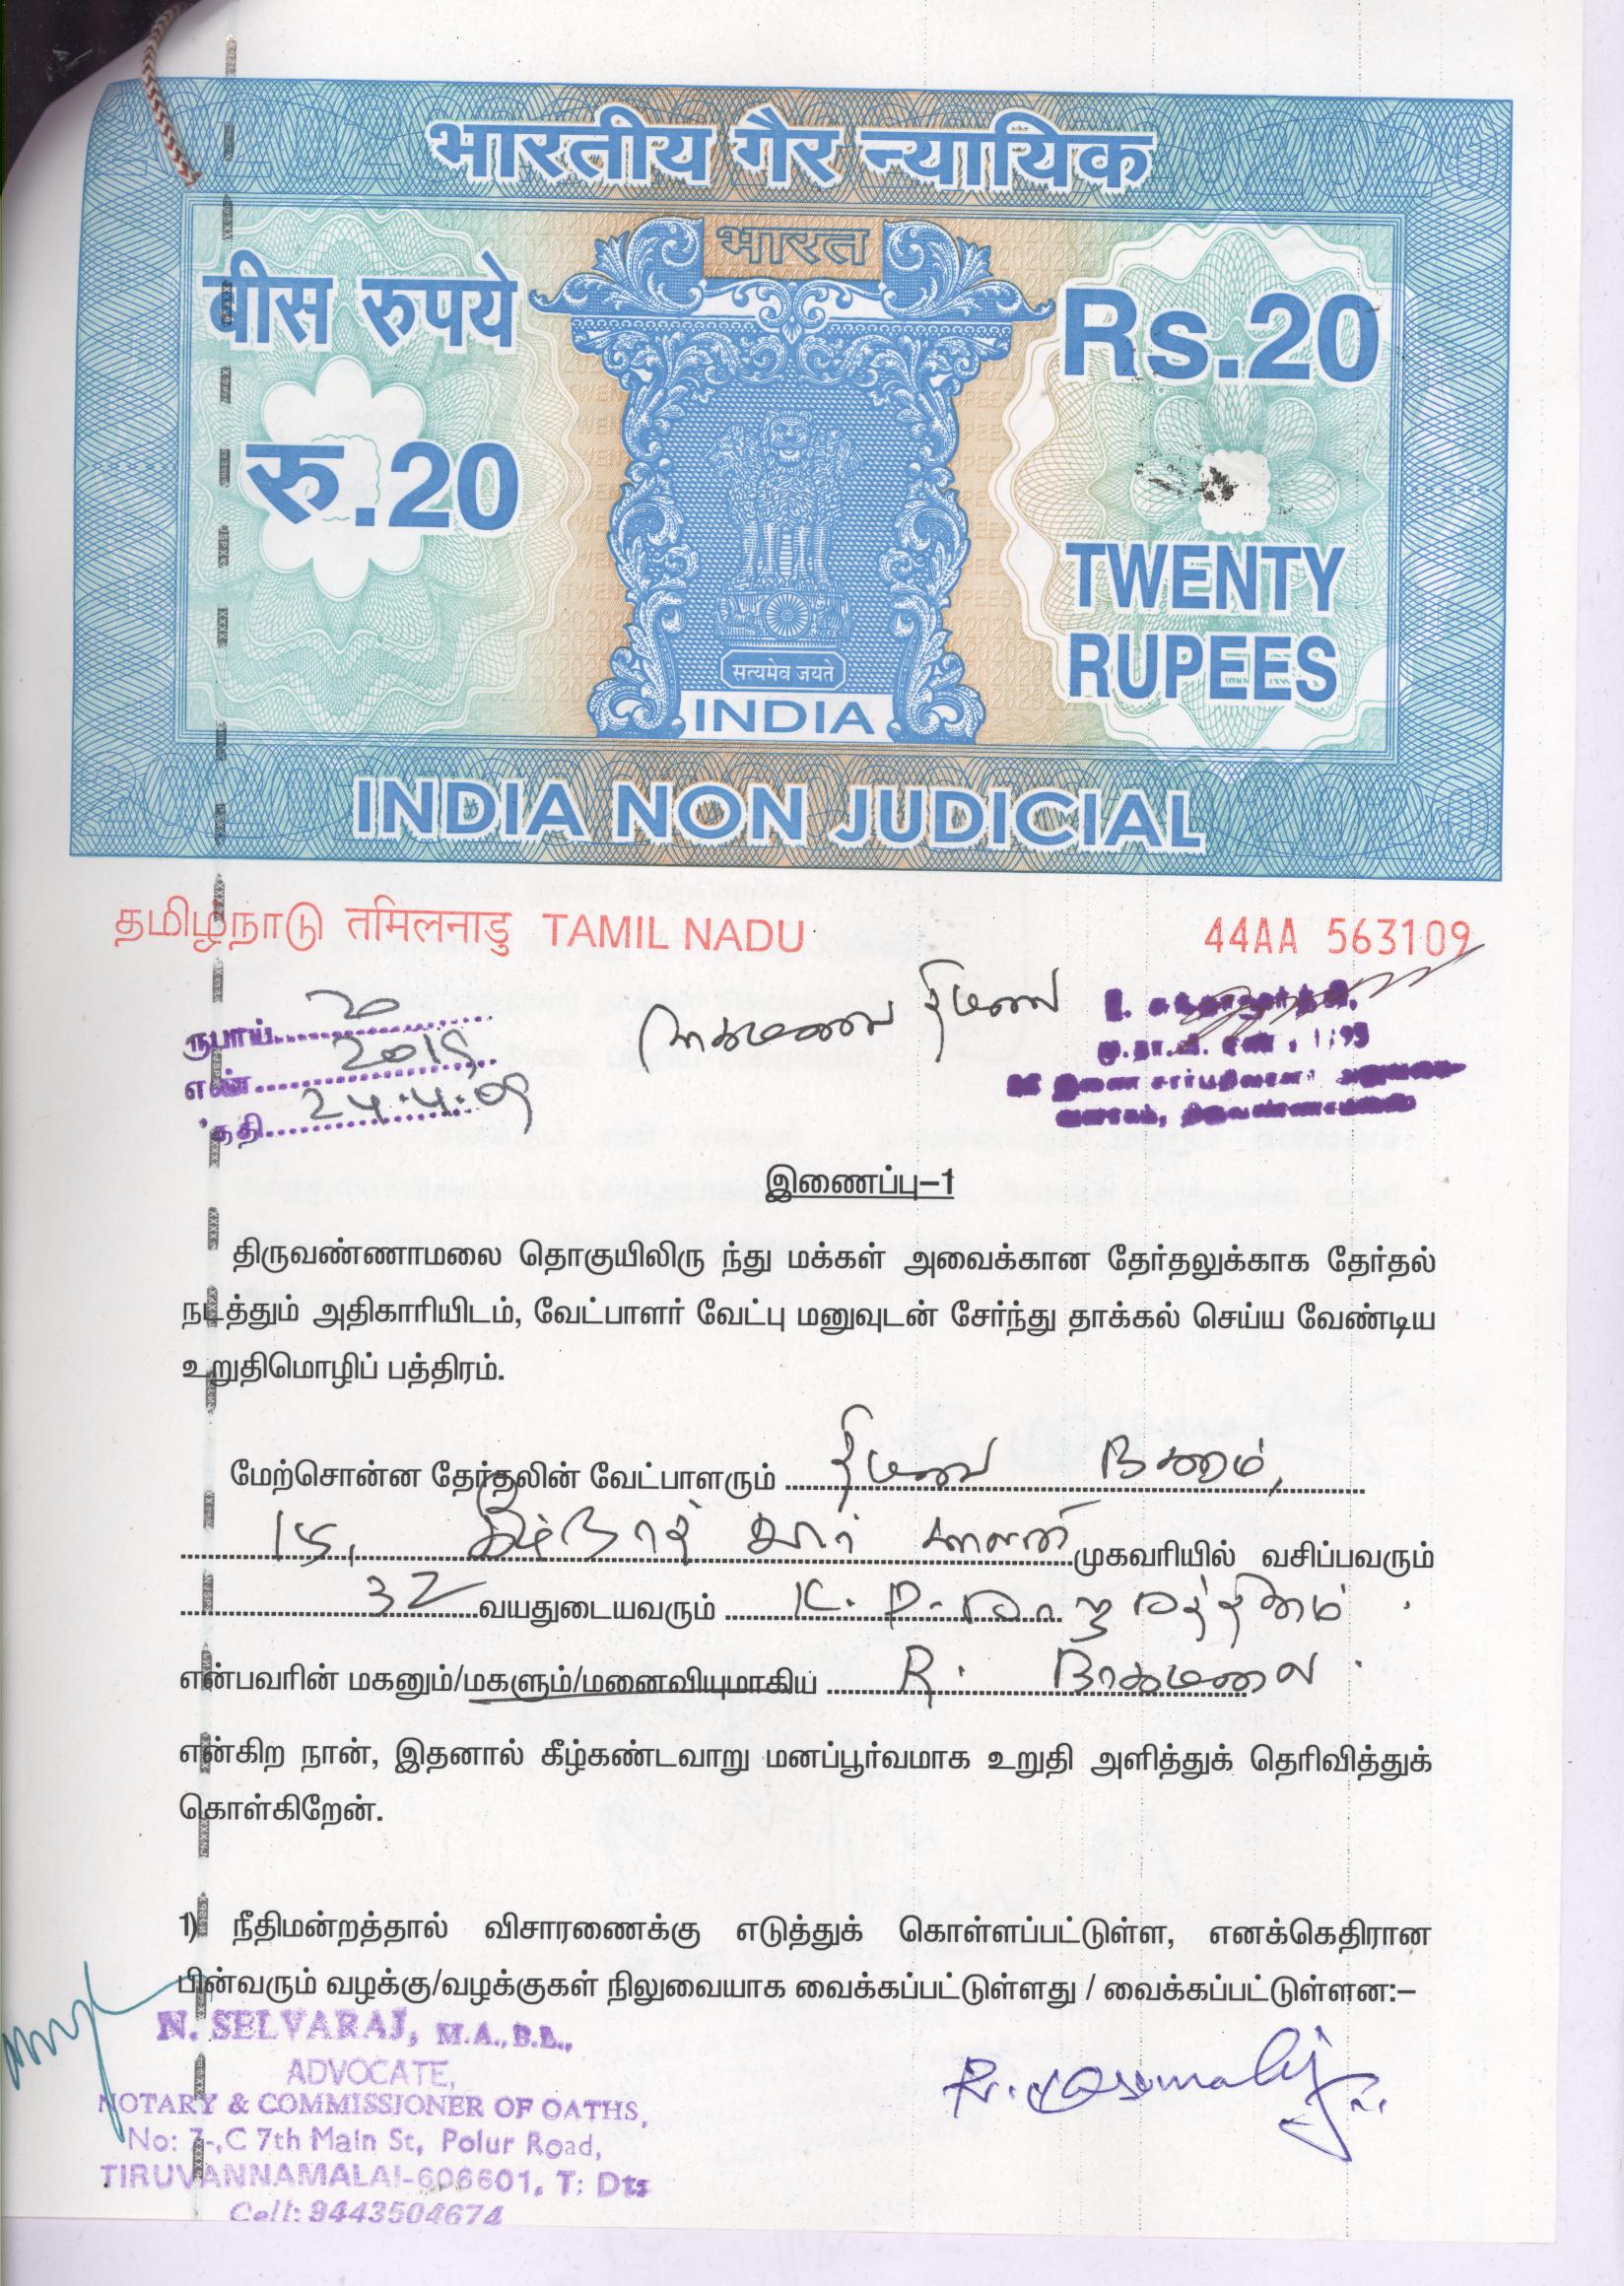 भारतीय गैर न्यायिक
भारत
बीस रुपये
Rs.20
रु.20
TWENTY
RUPEES
सत्यमेव जयते
INDIA
INDIA NON JUDICIAL
தமிழ்நாடு तमिलनाडु TAMIL NADU
44AA 563109
ரூபாய் 20
எண் 2015
தேதி 24.4.09
இணைப்பு–1
திருவண்ணாமலை தொகுயிலிரு ந்து மக்கள் அவைக்கான தேர்தலுக்காக தேர்தல்
நடத்தும் அதிகாரியிடம், வேட்பாளர் வேட்பு மனுவுடன் சேர்ந்து தாக்கல் செய்ய வேண்டிய
உறுதிமொழிப் பத்திரம்.
மேற்சொன்ன தேர்தலின் வேட்பாளரும்
முகவரியில் வசிப்பவரும்
32 வயதுடையவரும் K.
என்பவரின் மகனும்/மகளும்/மனைவியுமாகிய R.
என்கிற நான், இதனால் கீழ்கண்டவாறு மனப்பூர்வமாக உறுதி அளித்துக் தெரிவித்துக்
கொள்கிறேன்.
1) நீதிமன்றத்தால் விசாரணைக்கு எடுத்துக் கொள்ளப்பட்டுள்ள, எனக்கெதிரான
பின்வரும் வழக்கு/வழக்குகள் நிலுவையாக வைக்கப்பட்டுள்ளது / வைக்கப்பட்டுள்ளன:–
N. SELVARAJ, M.A., B.L.,
ADVOCATE,
NOTARY & COMMISSIONER OF OATHS,
No: 7-,C 7th Main St, Polur Road,
TIRUVANNAMALAI-606601. T: Dts
Cell: 9443504674